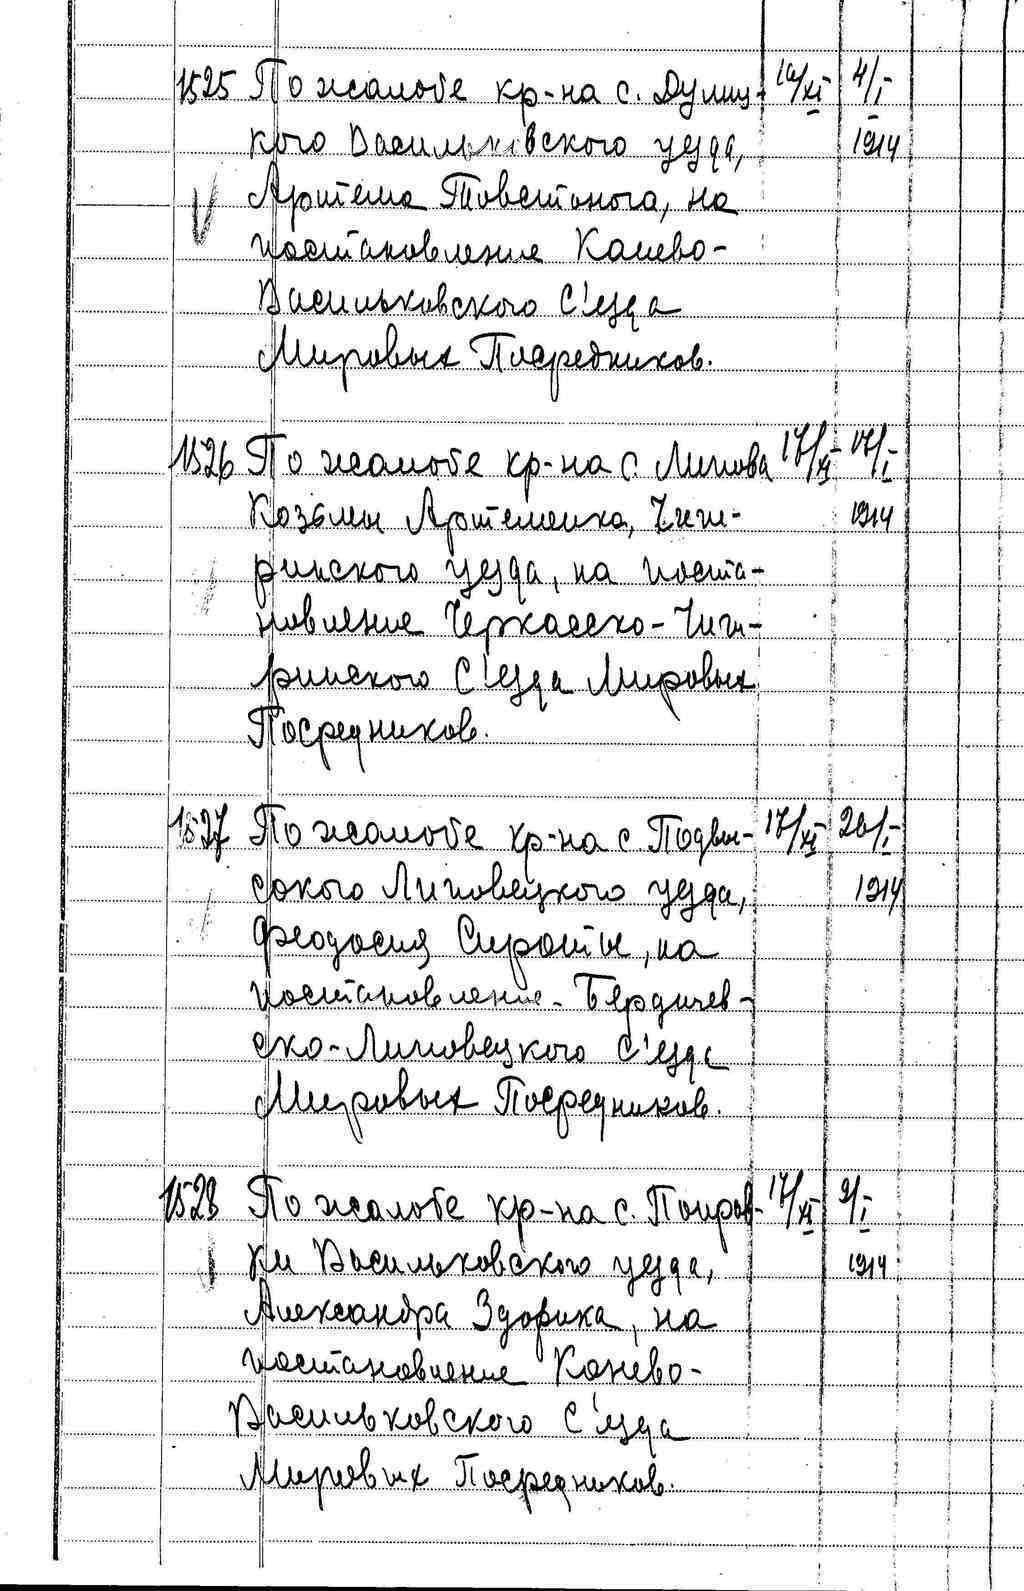 1525 По жалобе кр-на с. Дулиц- XI 4/I
кого Васильковского уезда, 1914
Артема Товстонога, на
постановление Канево-
Васильковского С'езда
Мировых Посредников.
1526 По жалобе кр-на с. Липова 17/XI 17/I
Козьмы Артеменка, Чиги- 1914
ринского уезда, на поста-
новление Черкасско-Чиги-
ринского С'езда Мировых
Посредников.
1527 По жалобе кр-на с. Подвы- 17/XI 20/I
сокого Липовецкого уезда, 1914
Феодосия Сироты, на
постановление Бердичев-
ско-Липовецкого С'езда
Мировых Посредников.
1528 По жалобе кр-на с. 17/XI 9/I
ки Васильковского уезда, 1914
Александра Здорика, на
постановление Канево-
Васильковского С'езда
Мировых Посредников.